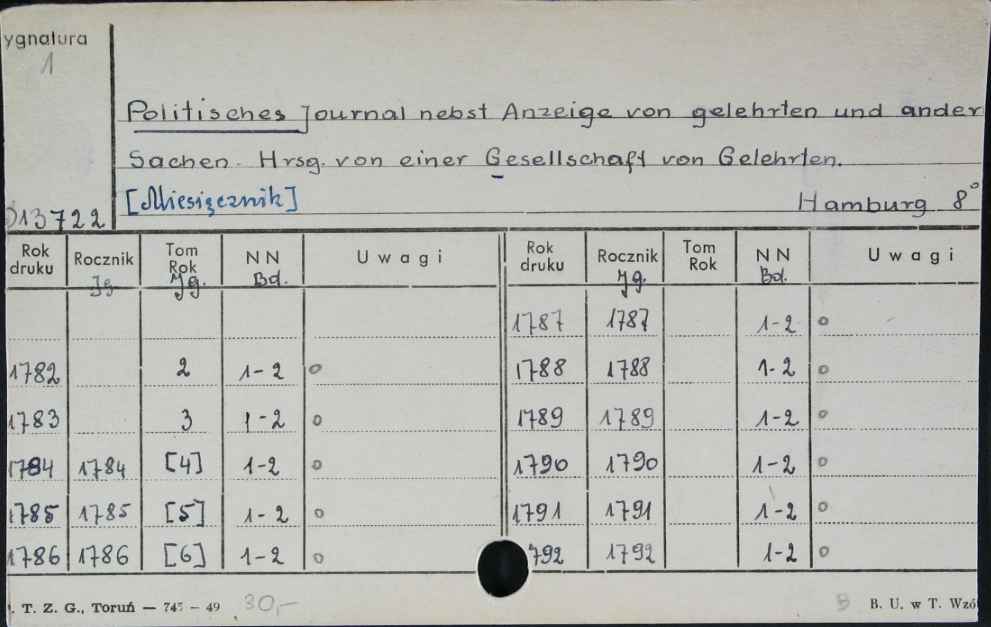 ygnatura
1
Politisches Journal nebst Anzeige von gelehrten und ander
Sachen. Hrsg. von einer Gesellschaft von Gelehrten.
[Miesięcznik] Hamburg 8°
013722
Rok druku Rocznik Jg. Tom Rok Jg. NN Bd. Uwagi Rok druku Rocznik Jg. Tom Rok NN Bd. Uwagi
1787 1787 1-2 o
1782 2 1-2 o 1788 1788 1-2 o
1783 3 1-2 o 1789 1789 1-2 o
1784 1784 [4] 1-2 o 1790 1790 1-2 o
1785 1785 [5] 1-2 o 1791 1791 1-2 o
1786 1786 [6] 1-2 o 792 1792 1-2 o
. T. Z. G., Toruń — 745 - 49 30,- B B. U. w T. Wzó